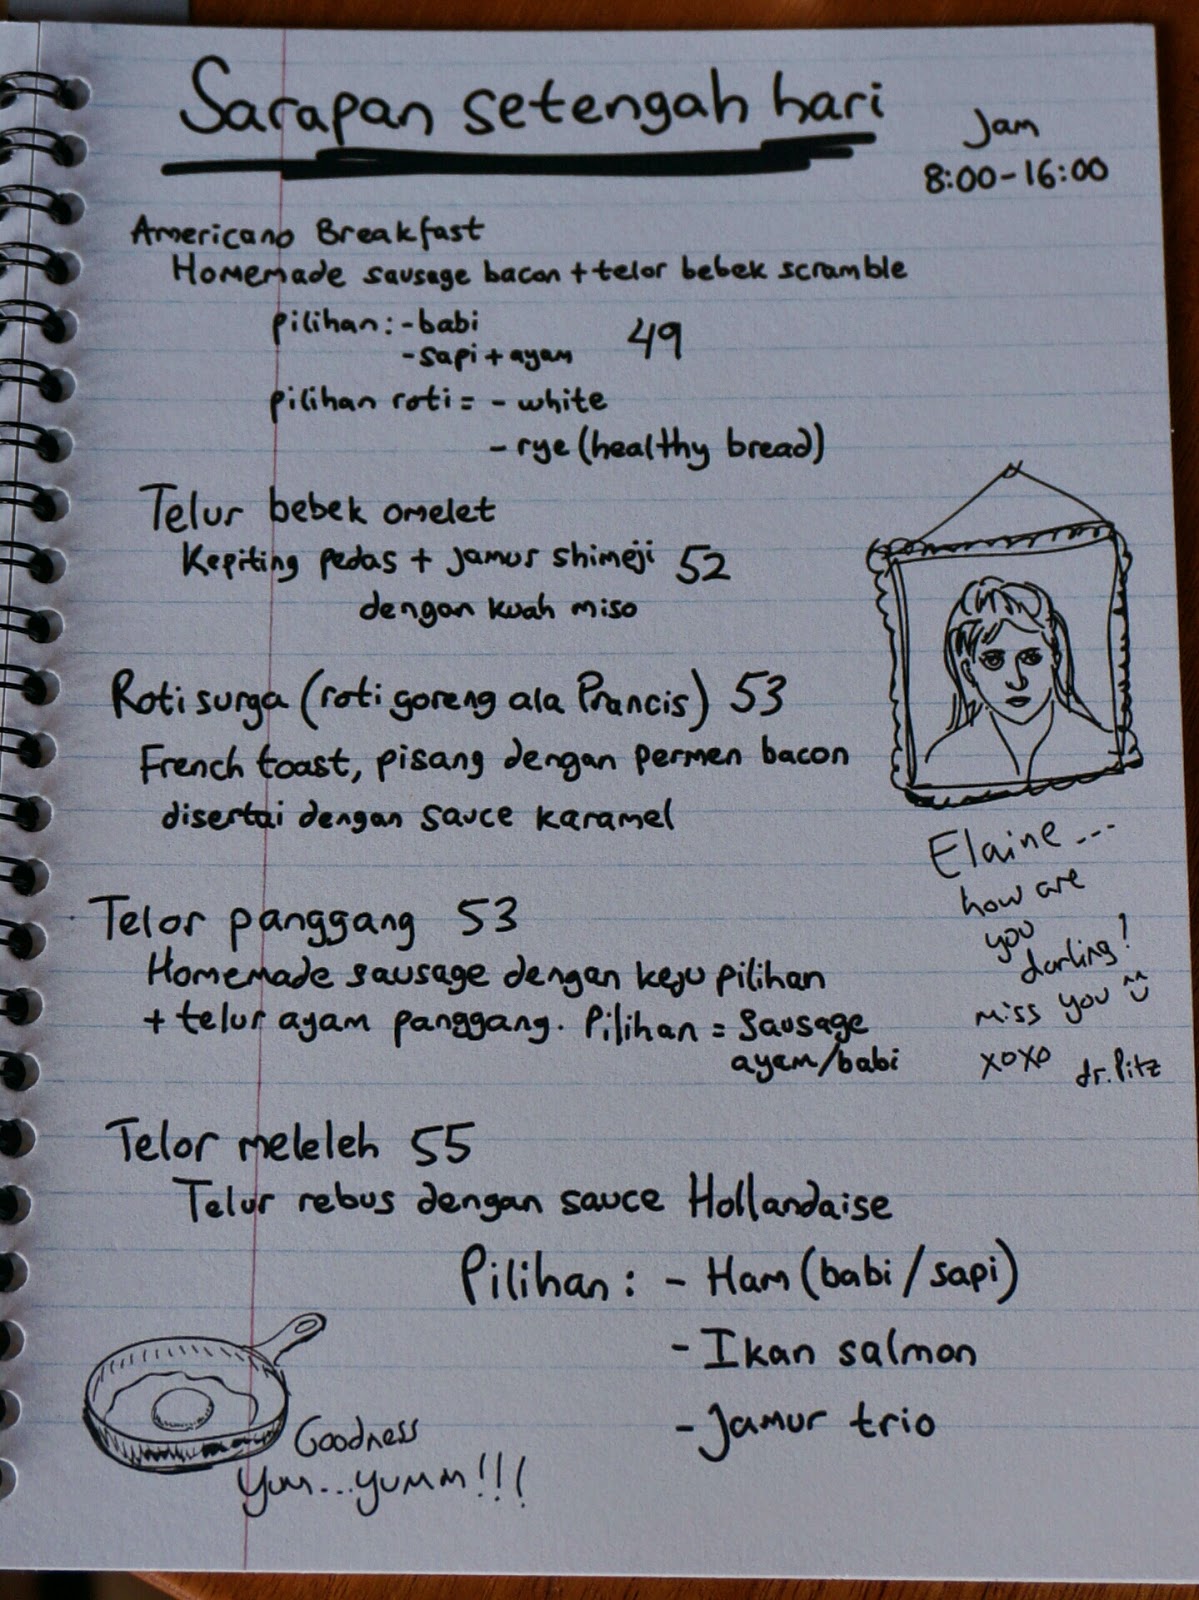 Sarapan setengah hari
Jam
8:00-16:00
Americano Breakfast
Homemade sausage bacon + telor bebek scramble
pilihan: - babi
- sapi + ayam 49
pilihan roti = - white
- rye (healthy bread)
Telur bebek omelet
Kepiting pedas + jamur shimeji 52
dengan kuah miso
Roti surga (roti goreng ala Prancis) 53
French toast, pisang dengan permen bacon
disertai dengan sauce karamel
Elaine ---
how are
you
darling!
miss you
xoxo dr. Pitz
Telor panggang 53
Homemade sausage dengan keju pilihan
+ telur ayam panggang. Pilihan = Sausage
ayam/babi
Telor meleleh 55
Telur rebus dengan sauce Hollandaise
Pilihan: - Ham (babi/sapi)
- Ikan salmon
- Jamur trio
Goodness
Yum...yumm!!!